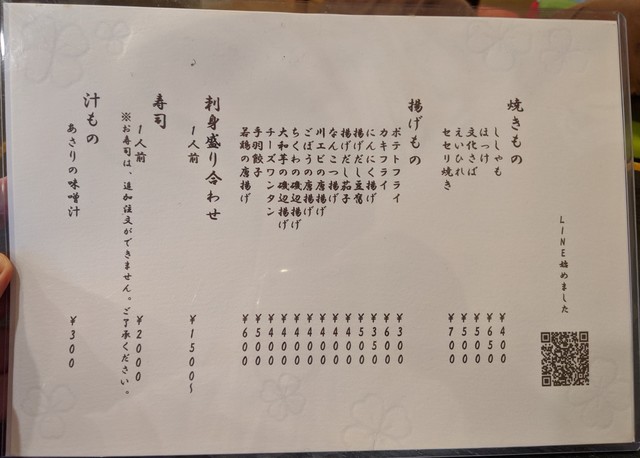 LINE始めました
焼きもの
ししゃも ¥400
ほっけ ¥650
文化さば ¥500
えいひれ ¥500
セセリ焼き ¥700
揚げもの
ポテトフライ ¥300
カキフライ ¥600
にんにく揚げ ¥350
揚げだし豆腐 ¥500
揚げだし茄子 ¥400
なんこつ揚げ ¥400
川エビの唐揚げ ¥400
ごぼうの唐揚げ ¥400
ちくわの磯辺揚げ ¥400
大和芋の磯辺揚げ ¥400
チーズワンタン ¥400
手羽餃子 ¥500
若鶏の唐揚げ ¥600
刺身盛り合わせ
1人前 ¥1500〜
寿司
1人前 ¥2000
※お寿司は、追加注文ができません。ご了承ください。
汁もの
あさりの味噌汁 ¥300